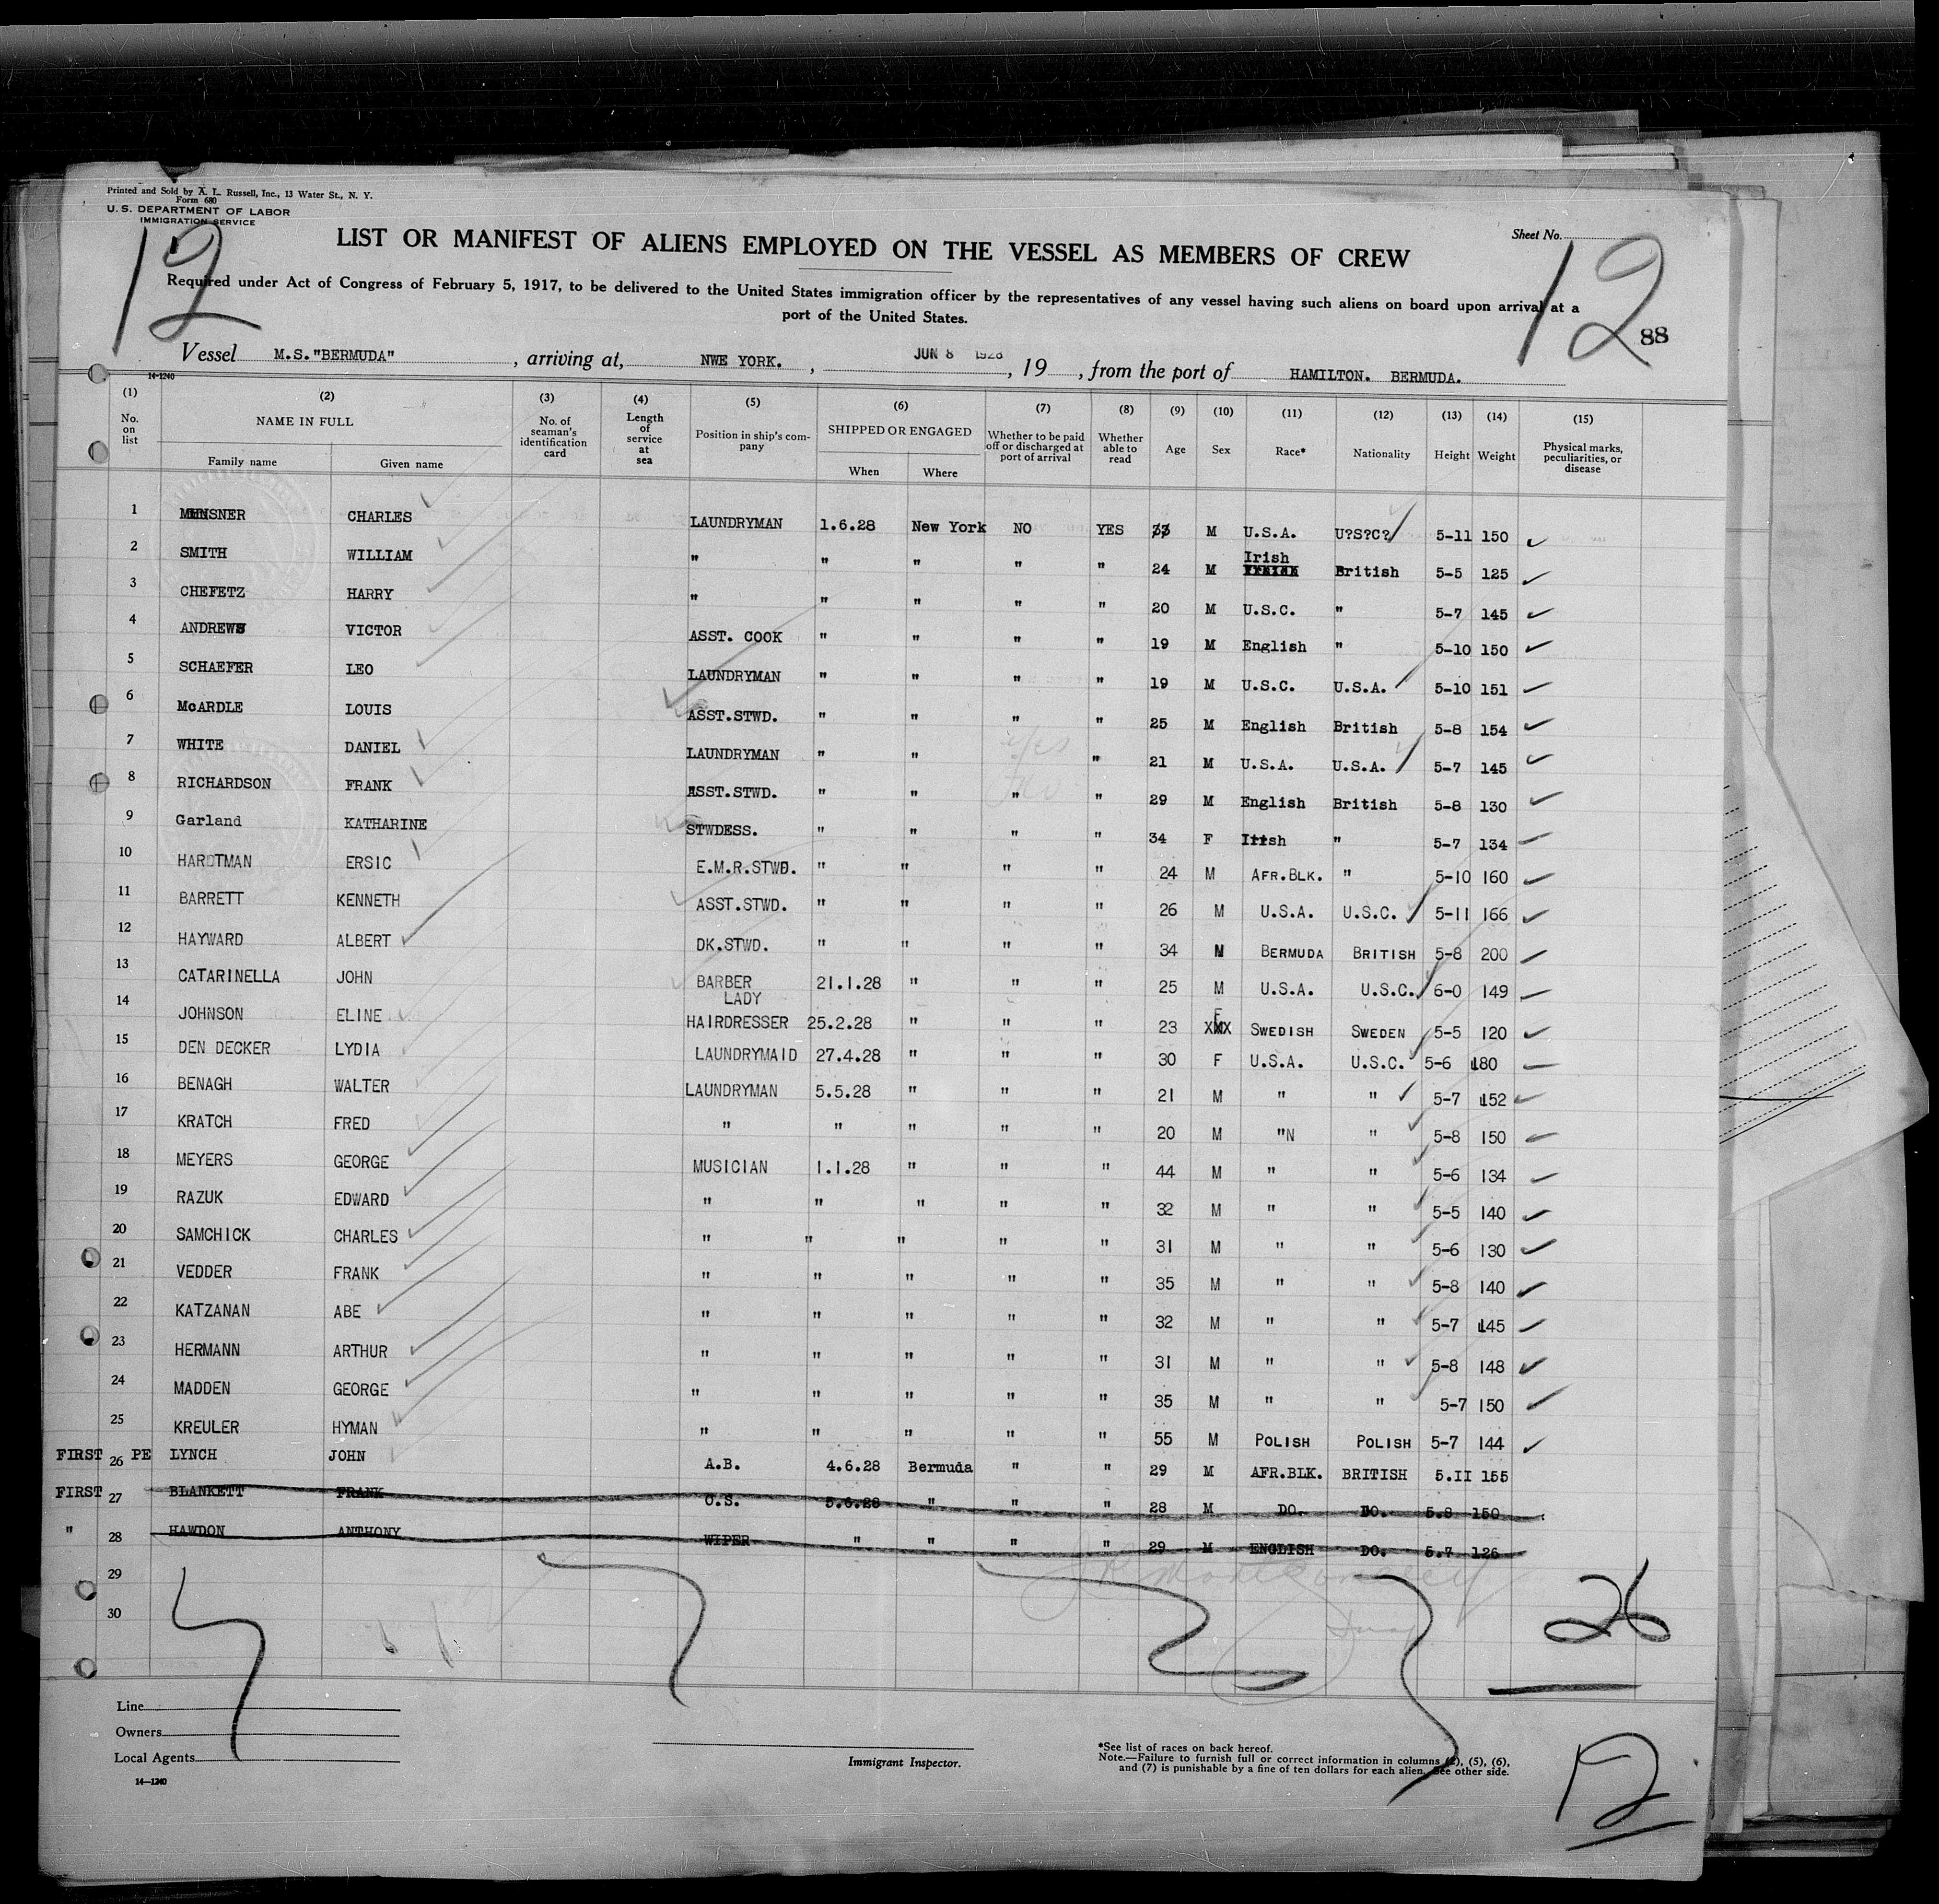 Printed and Sold by A. L. Russell, Inc., 13 Water St., N. Y.
Form 680
U. S. DEPARTMENT OF LABOR
IMMIGRATION SERVICE
Sheet No.
12
12
LIST OR MANIFEST OF ALIENS EMPLOYED ON THE VESSEL AS MEMBERS OF CREW
Required under Act of Congress of February 5, 1917, to be delivered to the United States immigration officer by the representatives of any vessel having such aliens on board upon arrival at a
port of the United States.
88
Vessel M.S."BERMUDA" , arriving at, NWE YORK. , JUN 8 1928 , 19 , from the port of HAMILTON. BERMUDA.
14-1240
(1) (2) (3) (4) (5) (6) (7) (8) (9) (10) (11) (12) (13) (14) (15)
No. on list NAME IN FULL Family name Given name No. of seaman's identification card Length of service at sea Position in ship's company SHIPPED OR ENGAGED When Where Whether to be paid off or discharged at port of arrival Whether able to read Age Sex Race* Nationality Height Weight Physical marks, peculiarities, or disease
1 CHARLES LAUNDRYMAN 1.6.28 New York NO YES M U.S.A. U?S?C? 5-11 150
2 SMITH WILLIAM " " " " " 24 M Irish British 5-5 125
3 CHEFETZ HARRY " " " " " 20 M U.S.C. " 5-7 145
4 ANDREWS VICTOR ASST. COOK " " " " 19 M English " 5-10 150
5 SCHAEFER LEO LAUNDRYMAN " " " " 19 M U.S.C. U.S.A. 5-10 151
6 McARDLE LOUIS ASST.STWD. " " " " 25 M English British 5-8 154
7 WHITE DANIEL LAUNDRYMAN " " " 21 M U.S.A. U.S.A. 5-7 145
8 RICHARDSON FRANK ASST.STWD. " " " " 29 M English British 5-8 130
9 Garland KATHARINE STWDESS. " " " " 34 F Irish " 5-7 134
10 HARDTMAN ERSIC E.M.R.STWD. " " " " 24 M AFR.BLK. " 5-10 160
11 BARRETT KENNETH ASST.STWD. " " " " 26 M U.S.A. U.S.C. 5-11 166
12 HAYWARD ALBERT DK.STWD. " " " " 34 M BERMUDA BRITISH 5-8 200
13 CATARINELLA JOHN BARBER 21.1.28 " " " 25 M U.S.A. U.S.C. 6-0 149
14 JOHNSON ELINE LADY HAIRDRESSER 25.2.28 " " " 23 F SWEDISH SWEDEN 5-5 120
15 DEN DECKER LYDIA LAUNDRYMAID 27.4.28 " " " 30 F U.S.A. U.S.C. 5-6 180
16 BENAGH WALTER LAUNDRYMAN 5.5.28 " " " 21 M " " 5-7 152
17 KRATCH FRED " " " " " 20 M "N " 5-8 150
18 MEYERS GEORGE MUSICIAN 1.1.28 " " " 44 M " " 5-6 134
19 RAZUK EDWARD " " " " " 32 M " " 5-5 140
20 SAMCHICK CHARLES " " " " " 31 M " " 5-6 130
21 VEDDER FRANK " " " " " 35 M " " 5-8 140
22 KATZANAN ABE " " " " " 32 M " " 5-7 145
23 HERMANN ARTHUR " " " " " 31 M " " 5-8 148
24 MADDEN GEORGE " " " " " 35 M " " 5-7 150
25 KREULER HYMAN " " " " " 55 M POLISH POLISH 5-7 144
FIRST 26 PE LYNCH JOHN A.B. 4.6.28 Bermuda " " 29 M AFR.BLK. BRITISH 5.II 155
FIRST 27 BLANKETT FRANK O.S. 5.6.28 " " " 28 M DO. DO. 5.8 150
" 28 HAWDON ANTHONY WIPER " " " " 29 M ENGLISH DO. 5.7 126
29
30
26
Line
Owners
Local Agents
14—1240
Immigrant Inspector.
*See list of races on back hereof.
Note.—Failure to furnish full or correct information in columns (2), (5), (6),
and (7) is punishable by a fine of ten dollars for each alien. See other side.
12